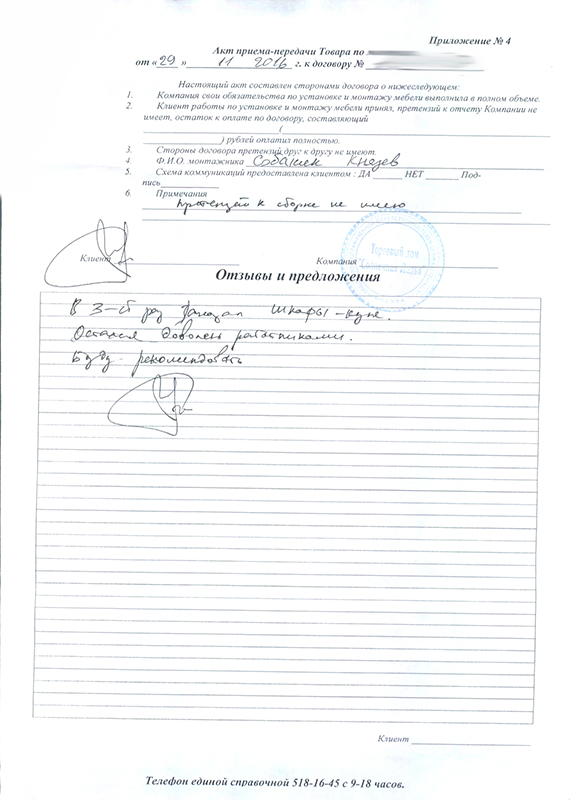 Приложение № 4
Акт приема-передачи Товара по
от «29 » 11 2016 г. к договору №
Настоящий акт составлен сторонами договора о нижеследующем:
1. Компания свои обязательства по установке и монтажу мебели выполнила в полном объеме.
2. Клиент работы по установке и монтажу мебели принял, претензий к отчету Компании не
имеет, остаток к оплате по договору, составляющий
(
) рублей оплатил полностью.
3. Стороны договора претензий друг к другу не имеют.
4. Ф.И.О. монтажника Князев
5. Схема коммуникаций предоставлена клиентом : ДА НЕТ Под-
пись
6. Примечания
претензей к сборке не имею
Клиент
Компания
Торговый дом
Отзывы и предложения
В 3-ий раз заказал шкафы-купе.
Остался доволен работниками.
Буду рекомендовать
Клиент
Телефон единой справочной 518-16-45 с 9-18 часов.